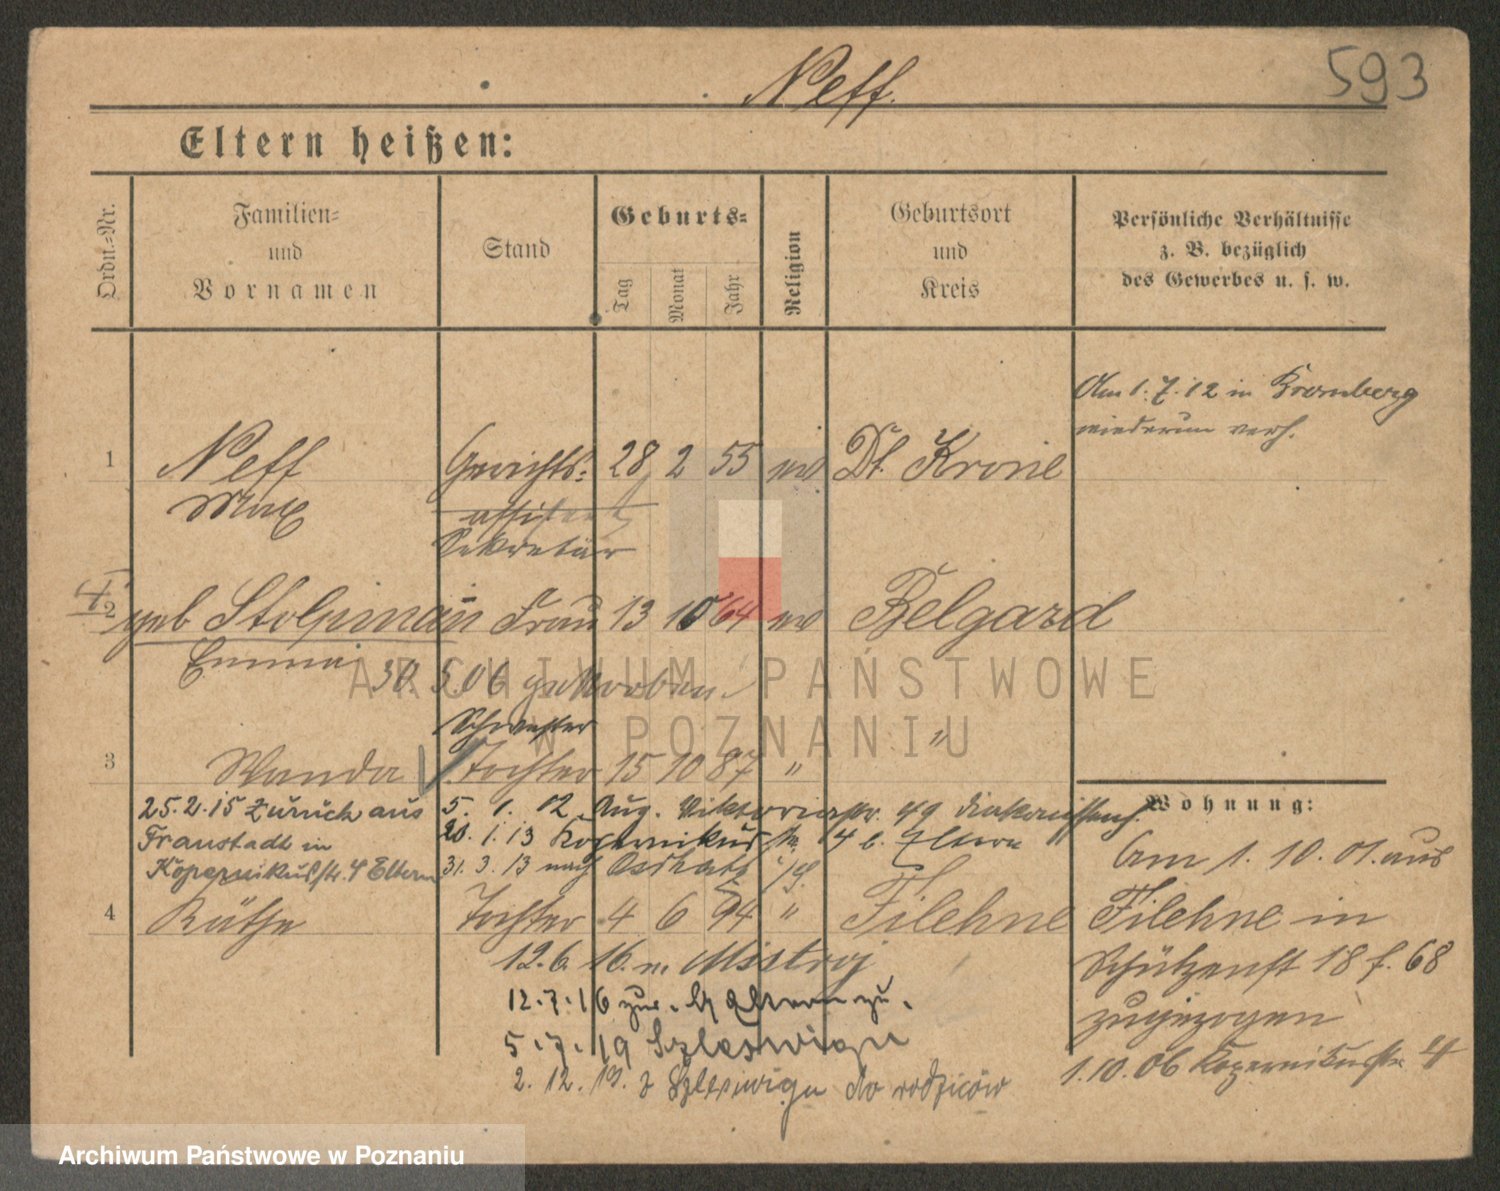 Neff.
593
Eltern heißen:
Ordn.=Nr.
Familien=
und
Vornamen
Stand
Geburts=
Tag
Monat
Jahr
Religion
Geburtsort
und
Kreis
Persönliche Verhältnisse
z. B. bezüglich
des Gewerbes u. s. w.
Am 1.7.12 in Bromberg
wiederum verh.
1 Neff Gerichts= 28 2 55 ev Dt. Krone
Max assistent
Sekretär
2 geb Stolpmann Frau 13 10 64 ev Belgard
Emma 30 5.06 gestorben
Schwester
3 Wanda Tochter 15 10 87 " "
Wohnung:
25.2.15 zurück aus
Fraustadt in
Kopernikusstr. 4 Eltern
5. 1. 02 Aug. Viktoriastr. 49
20. 1. 13 Kopernikusstr. 4 b. Eltern
31. 3. 13 nach
4 Käthe Tochter 4 6 94 " Filehne
12.6.16. n. Misdroy
12.7.16 zur. Eltern zu.
5.7.19 Szleswigu
2.12.19. z Szleswigu do rodziców
Am 1.10.01. aus
Filehne in
Schützenstr 18 f. 68
zugezogen
1.10.06 Kopernikusstr 4
ARCHIWUM PAŃSTWOWE
W POZNANIU
Archiwum Państwowe w Poznaniu